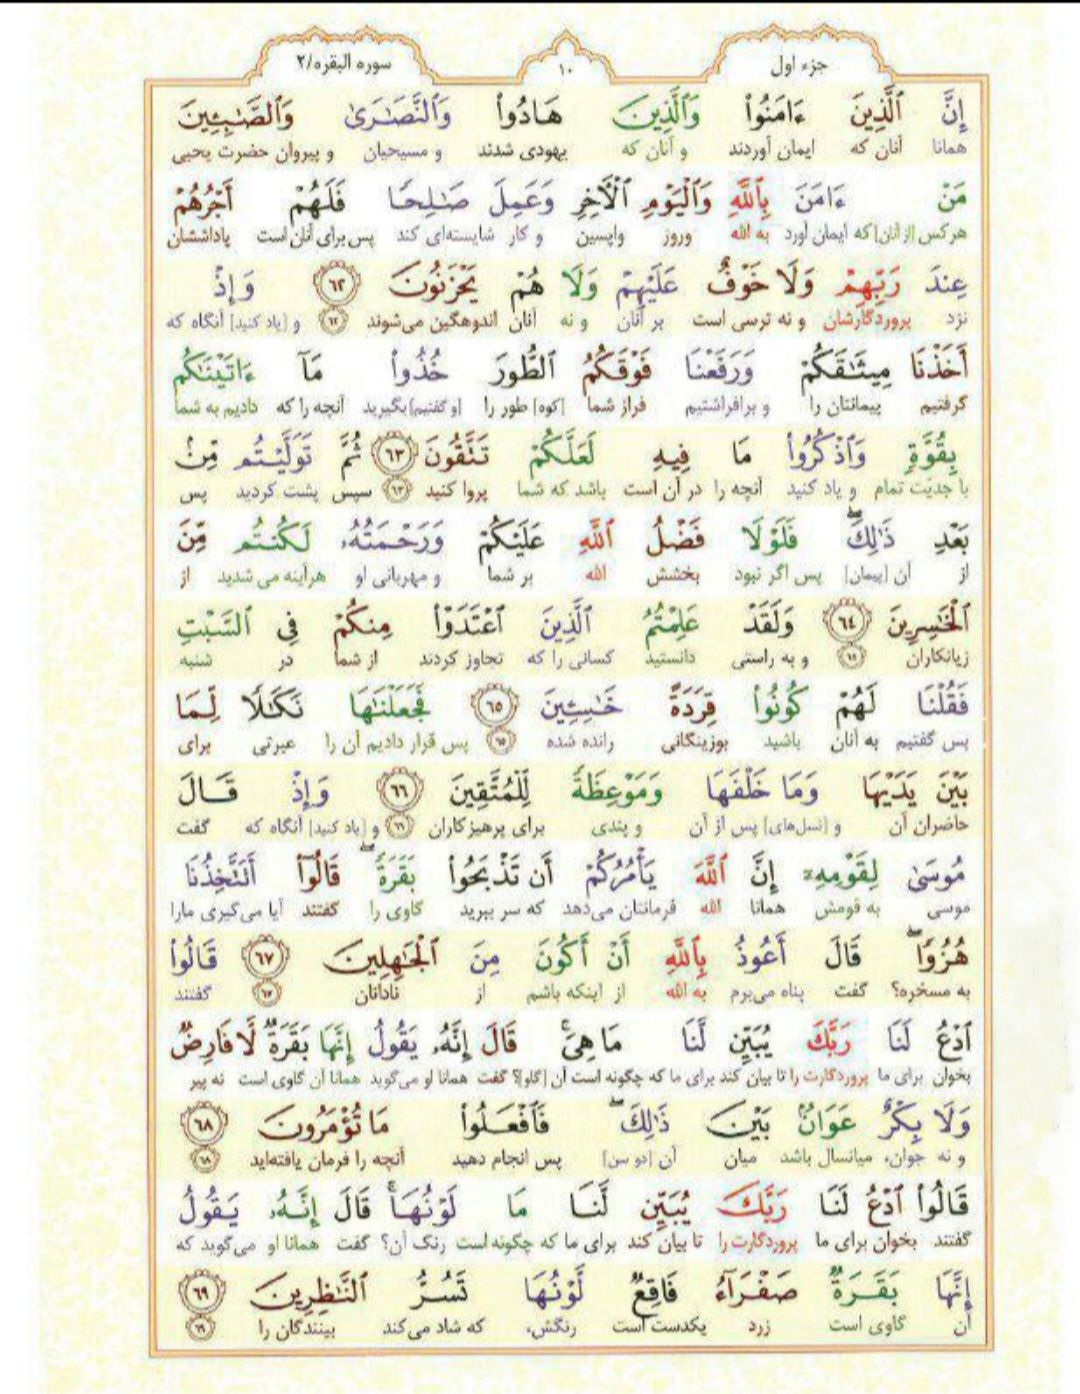 جزء اول
١٠
سوره البقره/٢
إِنَّ ٱلَّذِينَ ءَامَنُوا۟ وَٱلَّذِينَ هَادُوا۟ وَٱلنَّصَـٰرَىٰ وَٱلصَّـٰبِـِٔينَ
همانا آنان که ایمان آوردند و آنان که یهودی شدند و مسیحیان و پیروان حضرت یحیی
مَنْ ءَامَنَ بِٱللَّهِ وَٱلْيَوْمِ ٱلْأَخِرِ وَعَمِلَ صَـٰلِحًا فَلَهُمْ أَجْرُهُمْ
هرکس [از آنان] که ایمان آورد به الله وروز واپسین و کار شایسته‌ای کند پس برای آنان است پاداششان
عِندَ رَبِّهِمْ وَلَا خَوْفٌ عَلَيْهِمْ وَلَا هُمْ يَحْزَنُونَ ٦٢ وَإِذْ
نزد پروردگارشان و نه ترسی است بر آنان و نه آنان اندوهگین می‌شوند ٦٢ و [یاد کنید] آنگاه که
أَخَذْنَا مِيثَـٰقَكُمْ وَرَفَعْنَا فَوْقَكُمُ ٱلطُّورَ خُذُوا۟ مَآ ءَاتَيْنَـٰكُم
گرفتیم پیمانتان را و برافراشتیم فراز شما [کوه] طور را [و گفتیم] بگیرید آنچه را که دادیم به شما
بِقُوَّةٍ وَٱذْكُرُوا۟ مَا فِيهِ لَعَلَّكُمْ تَتَّقُونَ ٦٣ ثُمَّ تَوَلَّيْتُم مِّنۢ
با جدیّت تمام و یاد کنید آنچه را در آن است باشد که شما پروا کنید ٦٣ سپس پشت کردید پس
بَعْدِ ذَٰلِكَ ۖ فَلَوْلَا فَضْلُ ٱللَّهِ عَلَيْكُمْ وَرَحْمَتُهُۥ لَكُنتُم مِّنَ
از آن [پیمان] پس اگر نبود بخشش الله بر شما و مهربانی او هرآینه می شدید از
ٱلْخَـٰسِرِينَ ٦٤ وَلَقَدْ عَلِمْتُمُ ٱلَّذِينَ ٱعْتَدَوْا۟ مِنكُمْ فِى ٱلسَّبْتِ
زیانکاران ٦٤ و به راستی دانستید کسانی را که تجاوز کردند از شما در شنبه
فَقُلْنَا لَهُمْ كُونُوا۟ قِرَدَةً خَـٰسِـِٔينَ ٦٥ فَجَعَلْنَـٰهَا نَكَـٰلًا لِّمَا
پس گفتیم به آنان باشید بوزینگانی رانده شده ٦٥ پس قرار دادیم آن را عبرتی برای
بَيْنَ يَدَيْهَا وَمَا خَلْفَهَا وَمَوْعِظَةً لِّلْمُتَّقِينَ ٦٦ وَإِذْ قَالَ
حاضران آن و [نسل‌های] پس از آن و پندی برای پرهیزکاران ٦٦ و [یاد کنید] آنگاه که گفت
مُوسَىٰ لِقَوْمِهِۦٓ إِنَّ ٱللَّهَ يَأْمُرُكُمْ أَن تَذْبَحُوا۟ بَقَرَةً ۖ قَالُوٓا۟ أَتَتَّخِذُنَا
موسی به قومش همانا الله فرمانتان می‌دهد که سر ببرید گاوی را گفتند آیا می‌گیری مارا
هُزُوًا ۖ قَالَ أَعُوذُ بِٱللَّهِ أَنْ أَكُونَ مِنَ ٱلْجَـٰهِلِينَ ٦٧ قَالُوا۟
به مسخره؟ گفت پناه می‌برم به الله از اینکه باشم از نادانان ٦٧ گفتند
ٱدْعُ لَنَا رَبَّكَ يُبَيِّن لَّنَا مَا هِىَ ۚ قَالَ إِنَّهُۥ يَقُولُ إِنَّهَا بَقَرَةٌ لَّا فَارِضٌ
بخوان برای ما پروردگارت را تا بیان کند برای ما که چگونه است آن [گاو]؟ گفت همانا او می‌گوید همانا آن گاوی است نه پیر
وَلَا بِكْرٌ عَوَانٌۢ بَيْنَ ذَٰلِكَ ۖ فَٱفْعَلُوا۟ مَا تُؤْمَرُونَ ٦٨
و نه جوان، میانسال باشد میان آن [دو سن] پس انجام دهید آنچه را فرمان یافته‌اید ٦٨
قَالُوا۟ ٱدْعُ لَنَا رَبَّكَ يُبَيِّن لَّنَا مَا لَوْنُهَا ۚ قَالَ إِنَّهُۥ يَقُولُ
گفتند بخوان برای ما پروردگارت را تا بیان کند برای ما که چگونه است رنگ آن؟ گفت همانا او می‌گوید که
إِنَّهَا بَقَرَةٌ صَفْرَآءُ فَاقِعٌ لَّوْنُهَا تَسُرُّ ٱلنَّـٰظِرِينَ ٦٩
آن گاوی است زرد یکدست است رنگش، که شاد می‌کند بینندگان را ٦٩